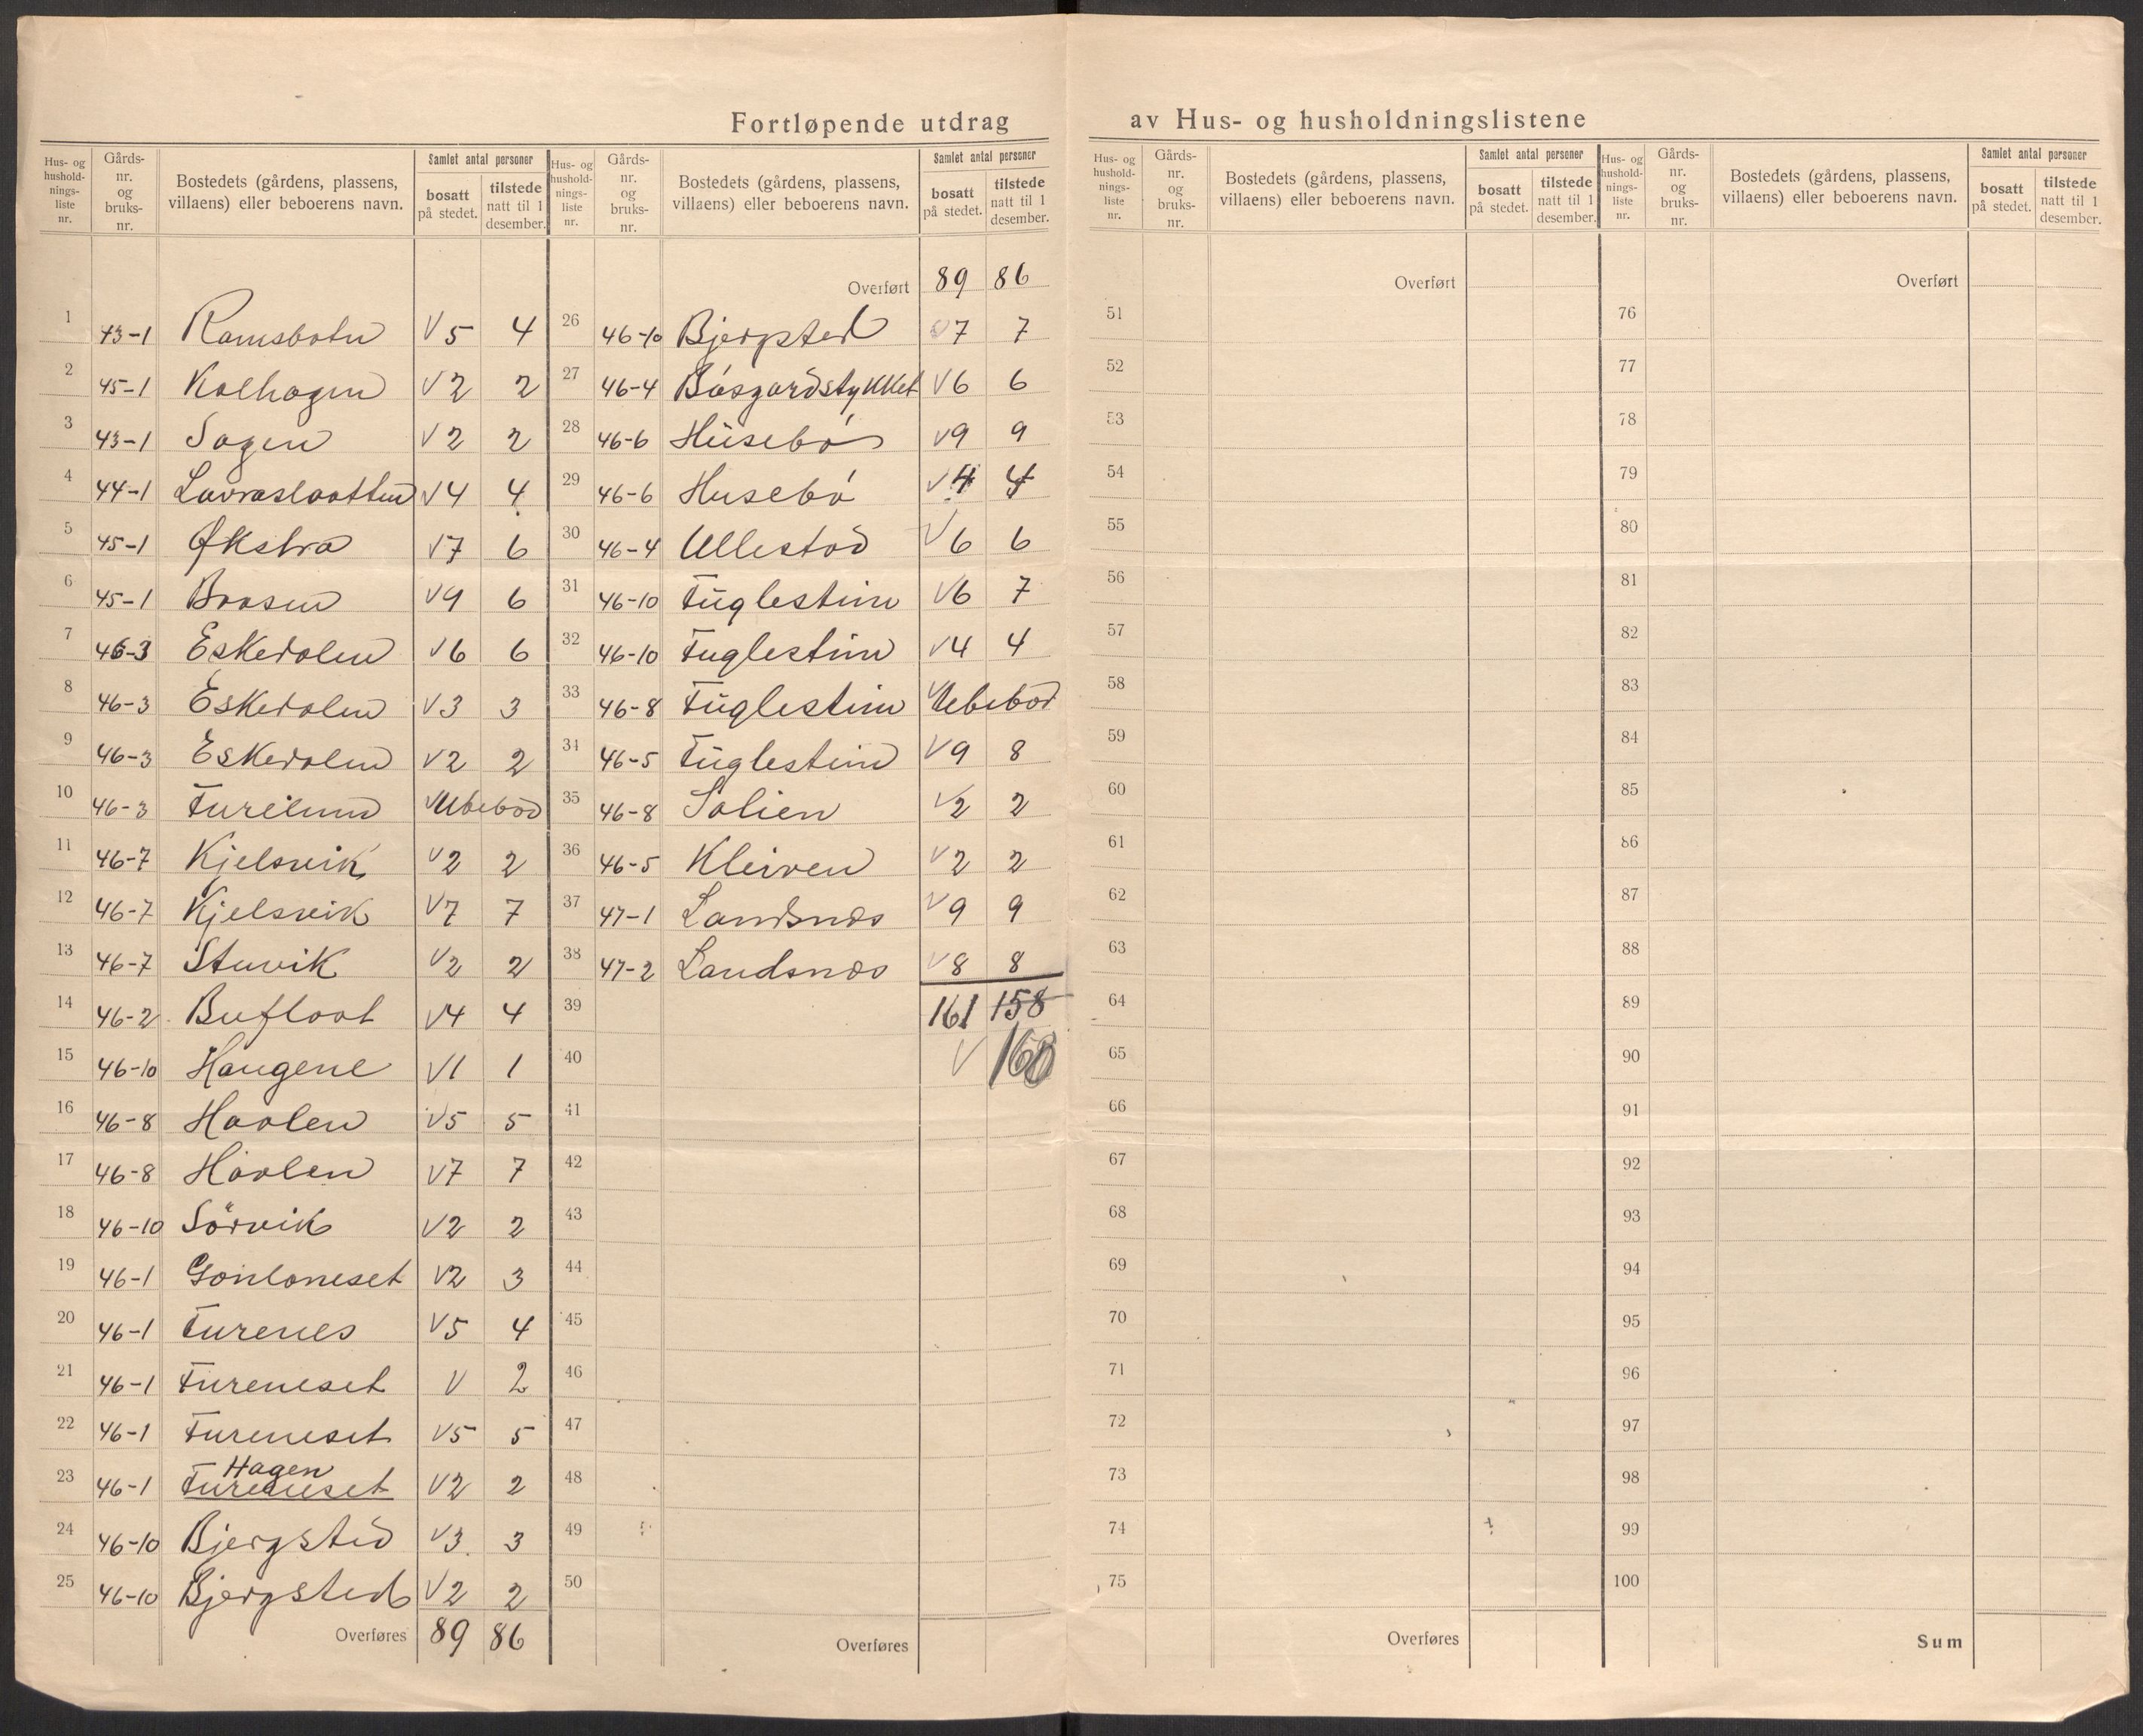 Fortløpende utdrag av Hus- og husholdningslistene
Hus- og hushold-nings-liste nr. Gårds-nr. og bruks-nr. Bostedets (gårdens, plassens, villaens) eller beboerens navn. Samlet antal personer bosatt på stedet. tilstede natt til 1 desember.
1 43-1 Ramsbotn V5 4
2 45-1 Kolhagen V2 2
3 43-1 Sagen V2 2
4 44-1 Lavraslaatten V4 4
5 45-1 Økstra V7 6
6 45-1 Braasen V9 6
7 46-3 Eskedalen V6 6
8 46-3 Eskedalen V3 3
9 46-3 Eskedalen V2 2
10 46-3 Furelund VUbebod
11 46-7 Kjelsvik V2 2
12 46-7 Kjelsvik V7 7
13 46-7 Stuvik V2 2
14 46-2 Buflaat V4 4
15 46-10 Haugene V1 1
16 46-8 Haolen V5 5
17 46-8 Haolen V7 7
18 46-10 Sörvik V2 2
19 46-1 V2 3
20 46-1 Furenes V5 4
21 46-1 Fureneset V 2
22 46-1 Fureneset V5 5
23 46-1 Hagen Fureneset V2 2
24 46-10 Bjergsted V3 3
25 46-10 Bjergsted V2 2
Overføres 89 86
Hus- og hushold-nings-liste nr. Gårds-nr. og bruks-nr. Bostedets (gårdens, plassens, villaens) eller beboerens navn. Samlet antal personer bosatt på stedet. tilstede natt til 1 desember.
Overført 89 86
26 46-10 Bjergsted 7 7
27 46-4 Båsgardstykket V6 6
28 46-6 Husebö V9 9
29 46-6 Husebö V4 4
30 46-4 Ullestad V6 6
31 46-10 Fuglestein V6 7
32 46-10 Fuglestein V4 4
33 46-8 Fuglestein VUbebod
34 46-5 Fuglestein V9 8
35 46-8 Solien V2 2
36 46-5 Kleiven V2 2
37 47-1 Landsnes V9 9
38 47-2 Landsnes V8 8
39 161 158
40 V 160
41
42
43
44
45
46
47
48
49
50
Overføres
Hus- og hushold-nings-liste nr. Gårds-nr. og bruks-nr. Bostedets (gårdens, plassens, villaens) eller beboerens navn. Samlet antal personer bosatt på stedet. tilstede natt til 1 desember.
Overført
51
52
53
54
55
56
57
58
59
60
61
62
63
64
65
66
67
68
69
70
71
72
73
74
75
Overføres
Hus- og hushold-nings-liste nr. Gårds-nr. og bruks-nr. Bostedets (gårdens, plassens, villaens) eller beboerens navn. Samlet antal personer bosatt på stedet. tilstede natt til 1 desember.
Overført
76
77
78
79
80
81
82
83
84
85
86
87
88
89
90
91
92
93
94
95
96
97
98
99
100
Sum